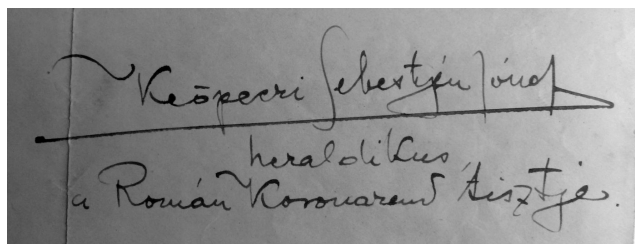 Keöpeczi Sebestyén József
heraldikus,
a Román Koronarend tisztje.